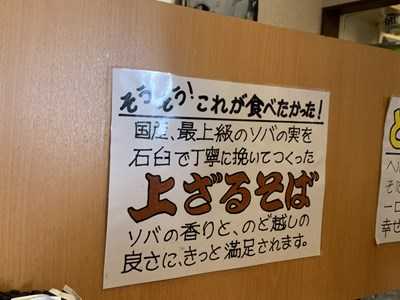 そうそう!これが食べたかった!
国産、最上級のソバの実を
石臼で丁寧に挽いてつくった
上ざるそば
ソバの香りと、のど越しの
良さに、きっと満足されます。